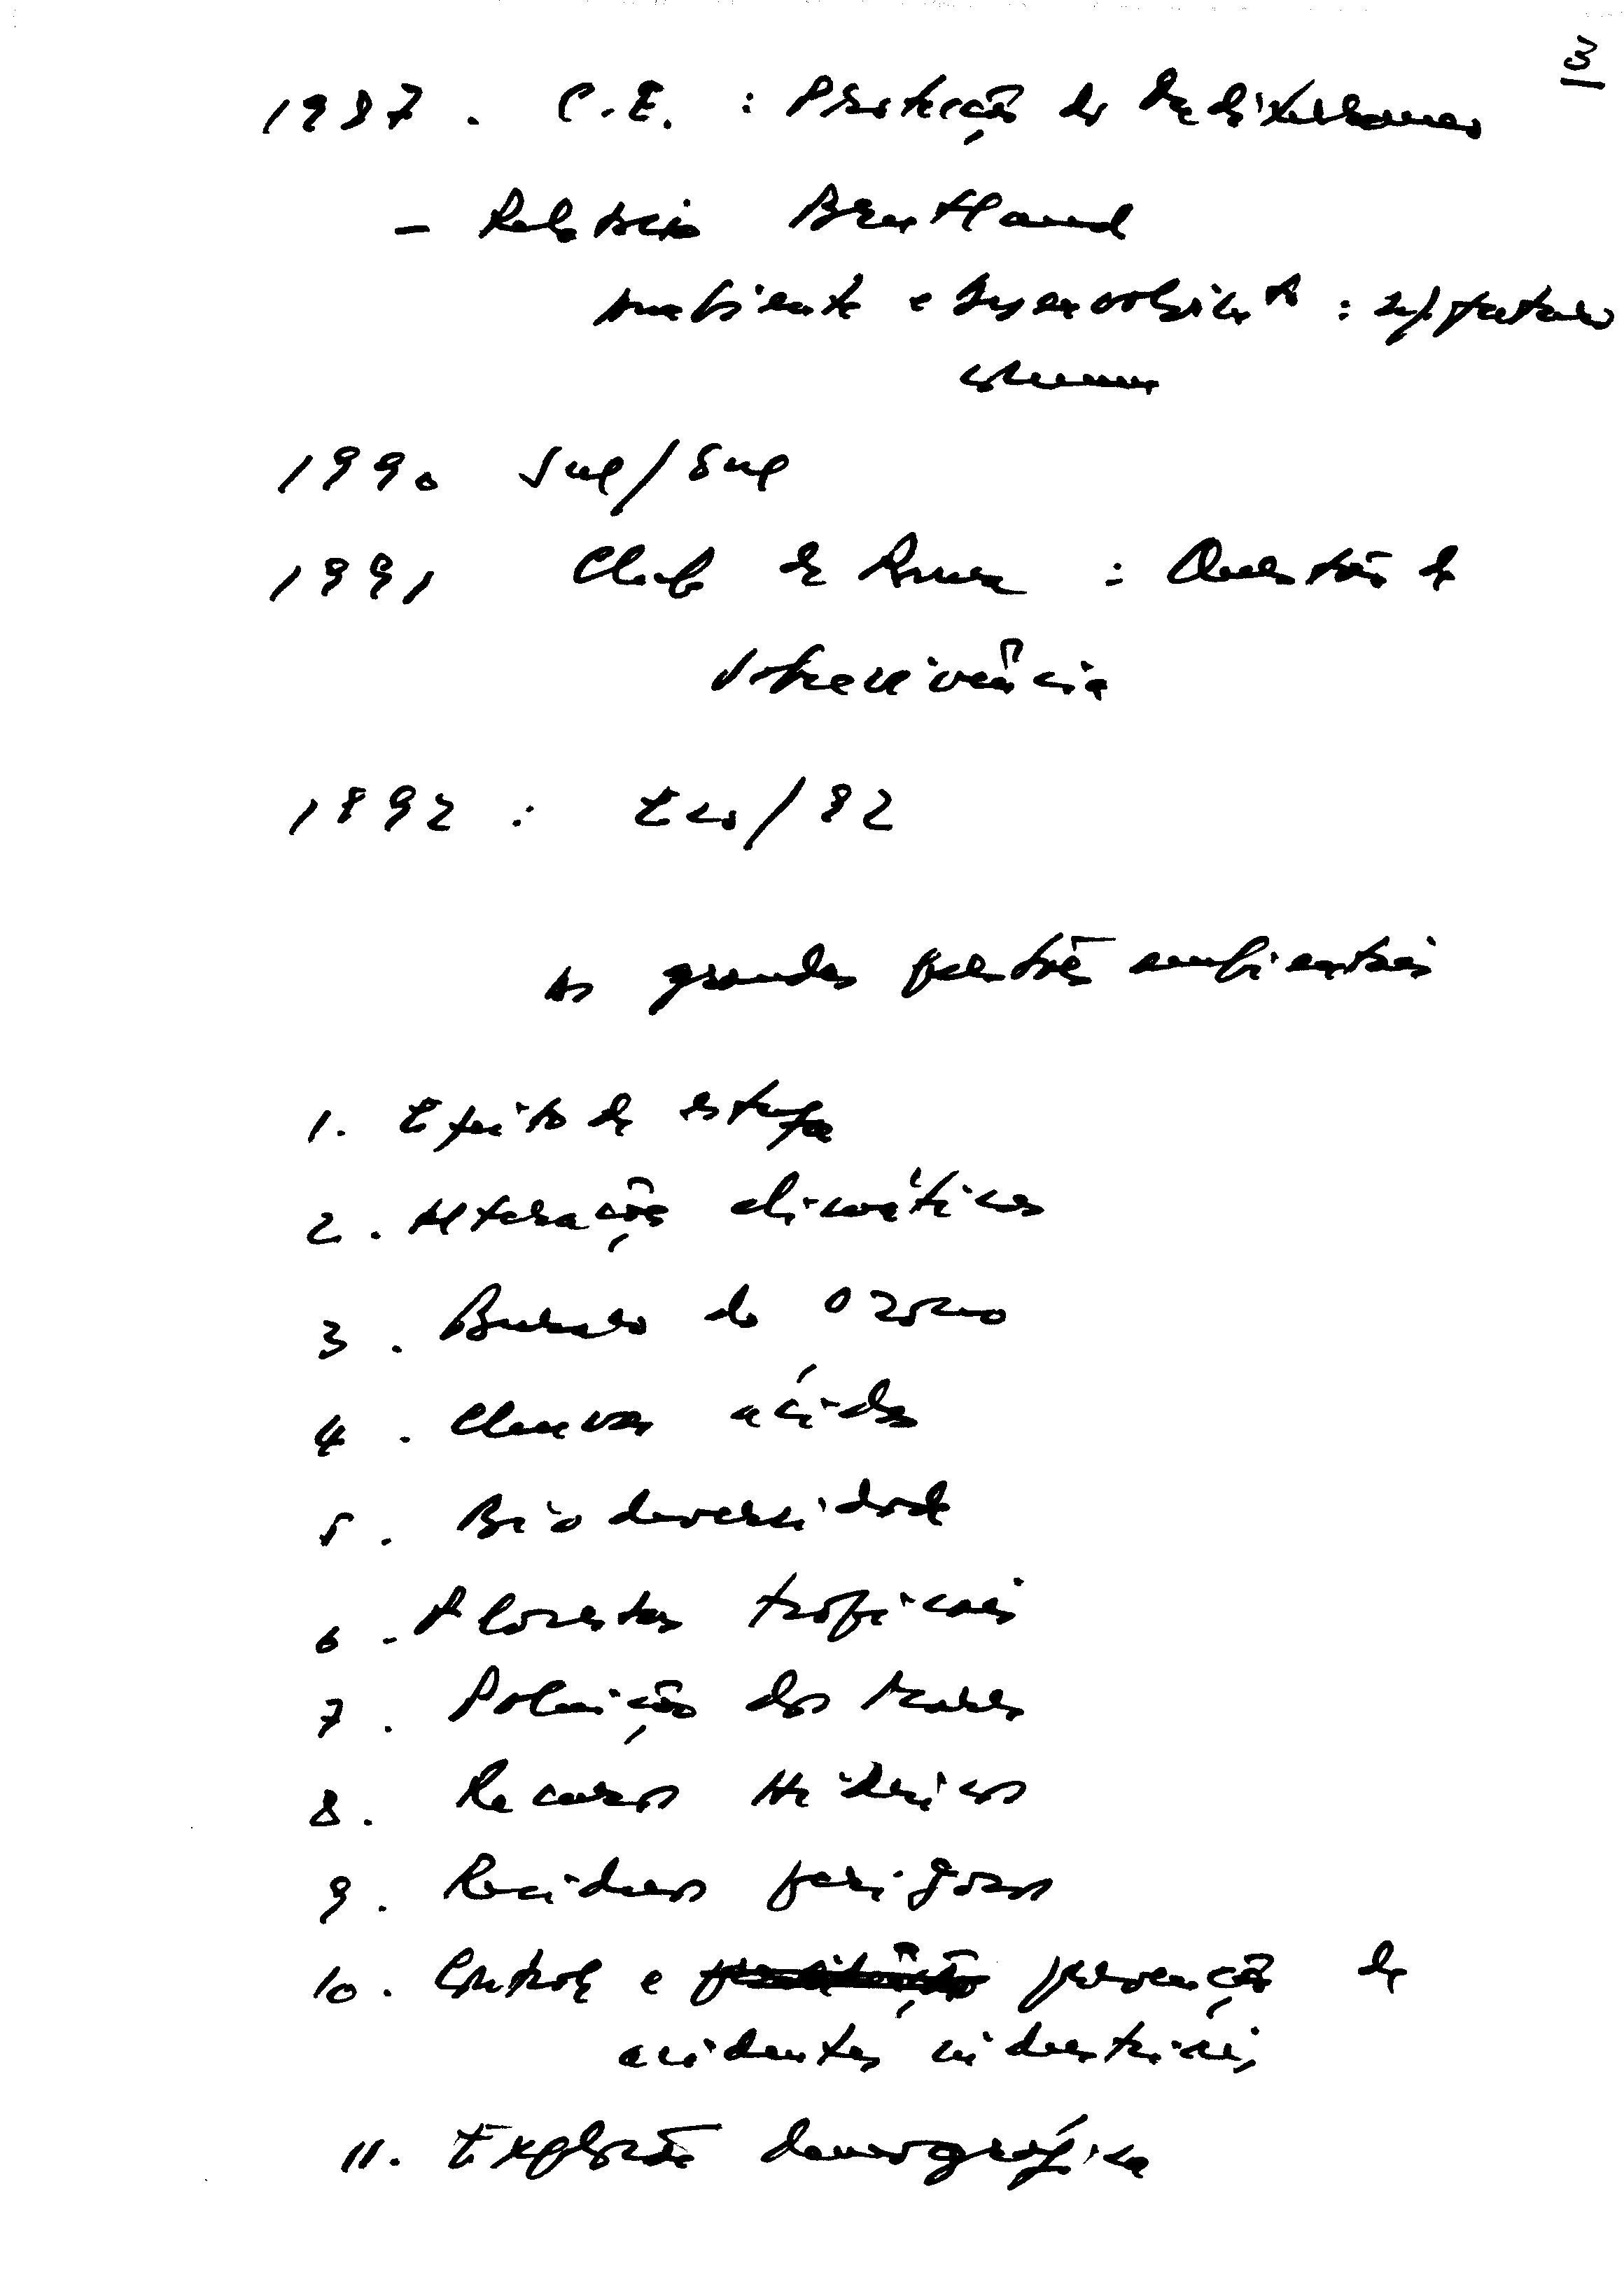 3
1987. C.E. : Protecção do Mediterraneo
- Relatório Bruntland
Ambiente e Desenvolvimto : futuro
comum
1990 Sul/Sul
1991 Club de Roma : Questão de
Sobrevivência
1992 : Eco/92
As grandes questões ambientais
1. Efeito de estufa
2. Alterações climáticas
3. Buraco do Ozono
4. Chuvas ácidas
5. Biodiversidade
6 - Florestas tropicais
7. Poluição dos Mares
8. Recursos Hídricos
9. Residuos perigosos
10. Controle e prevenção de
acidentes industriais
11. Explosão demográfica